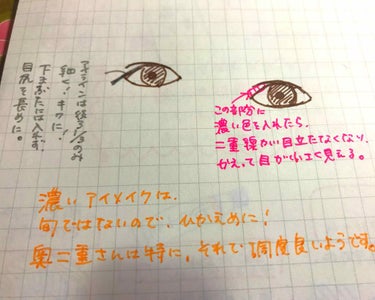 アイラインは後ろ1/3のみ
細く！キワに！
下まぶたには入れず、
目尻を長めに。
この部分に
濃い色を入れたら、
二重線が目立たなくなり、
かえって目が小さく見える。
濃いアイメイクは、
旬ではないので、ひかえめに！
奥二重さんは特に、それで調度良いようです。